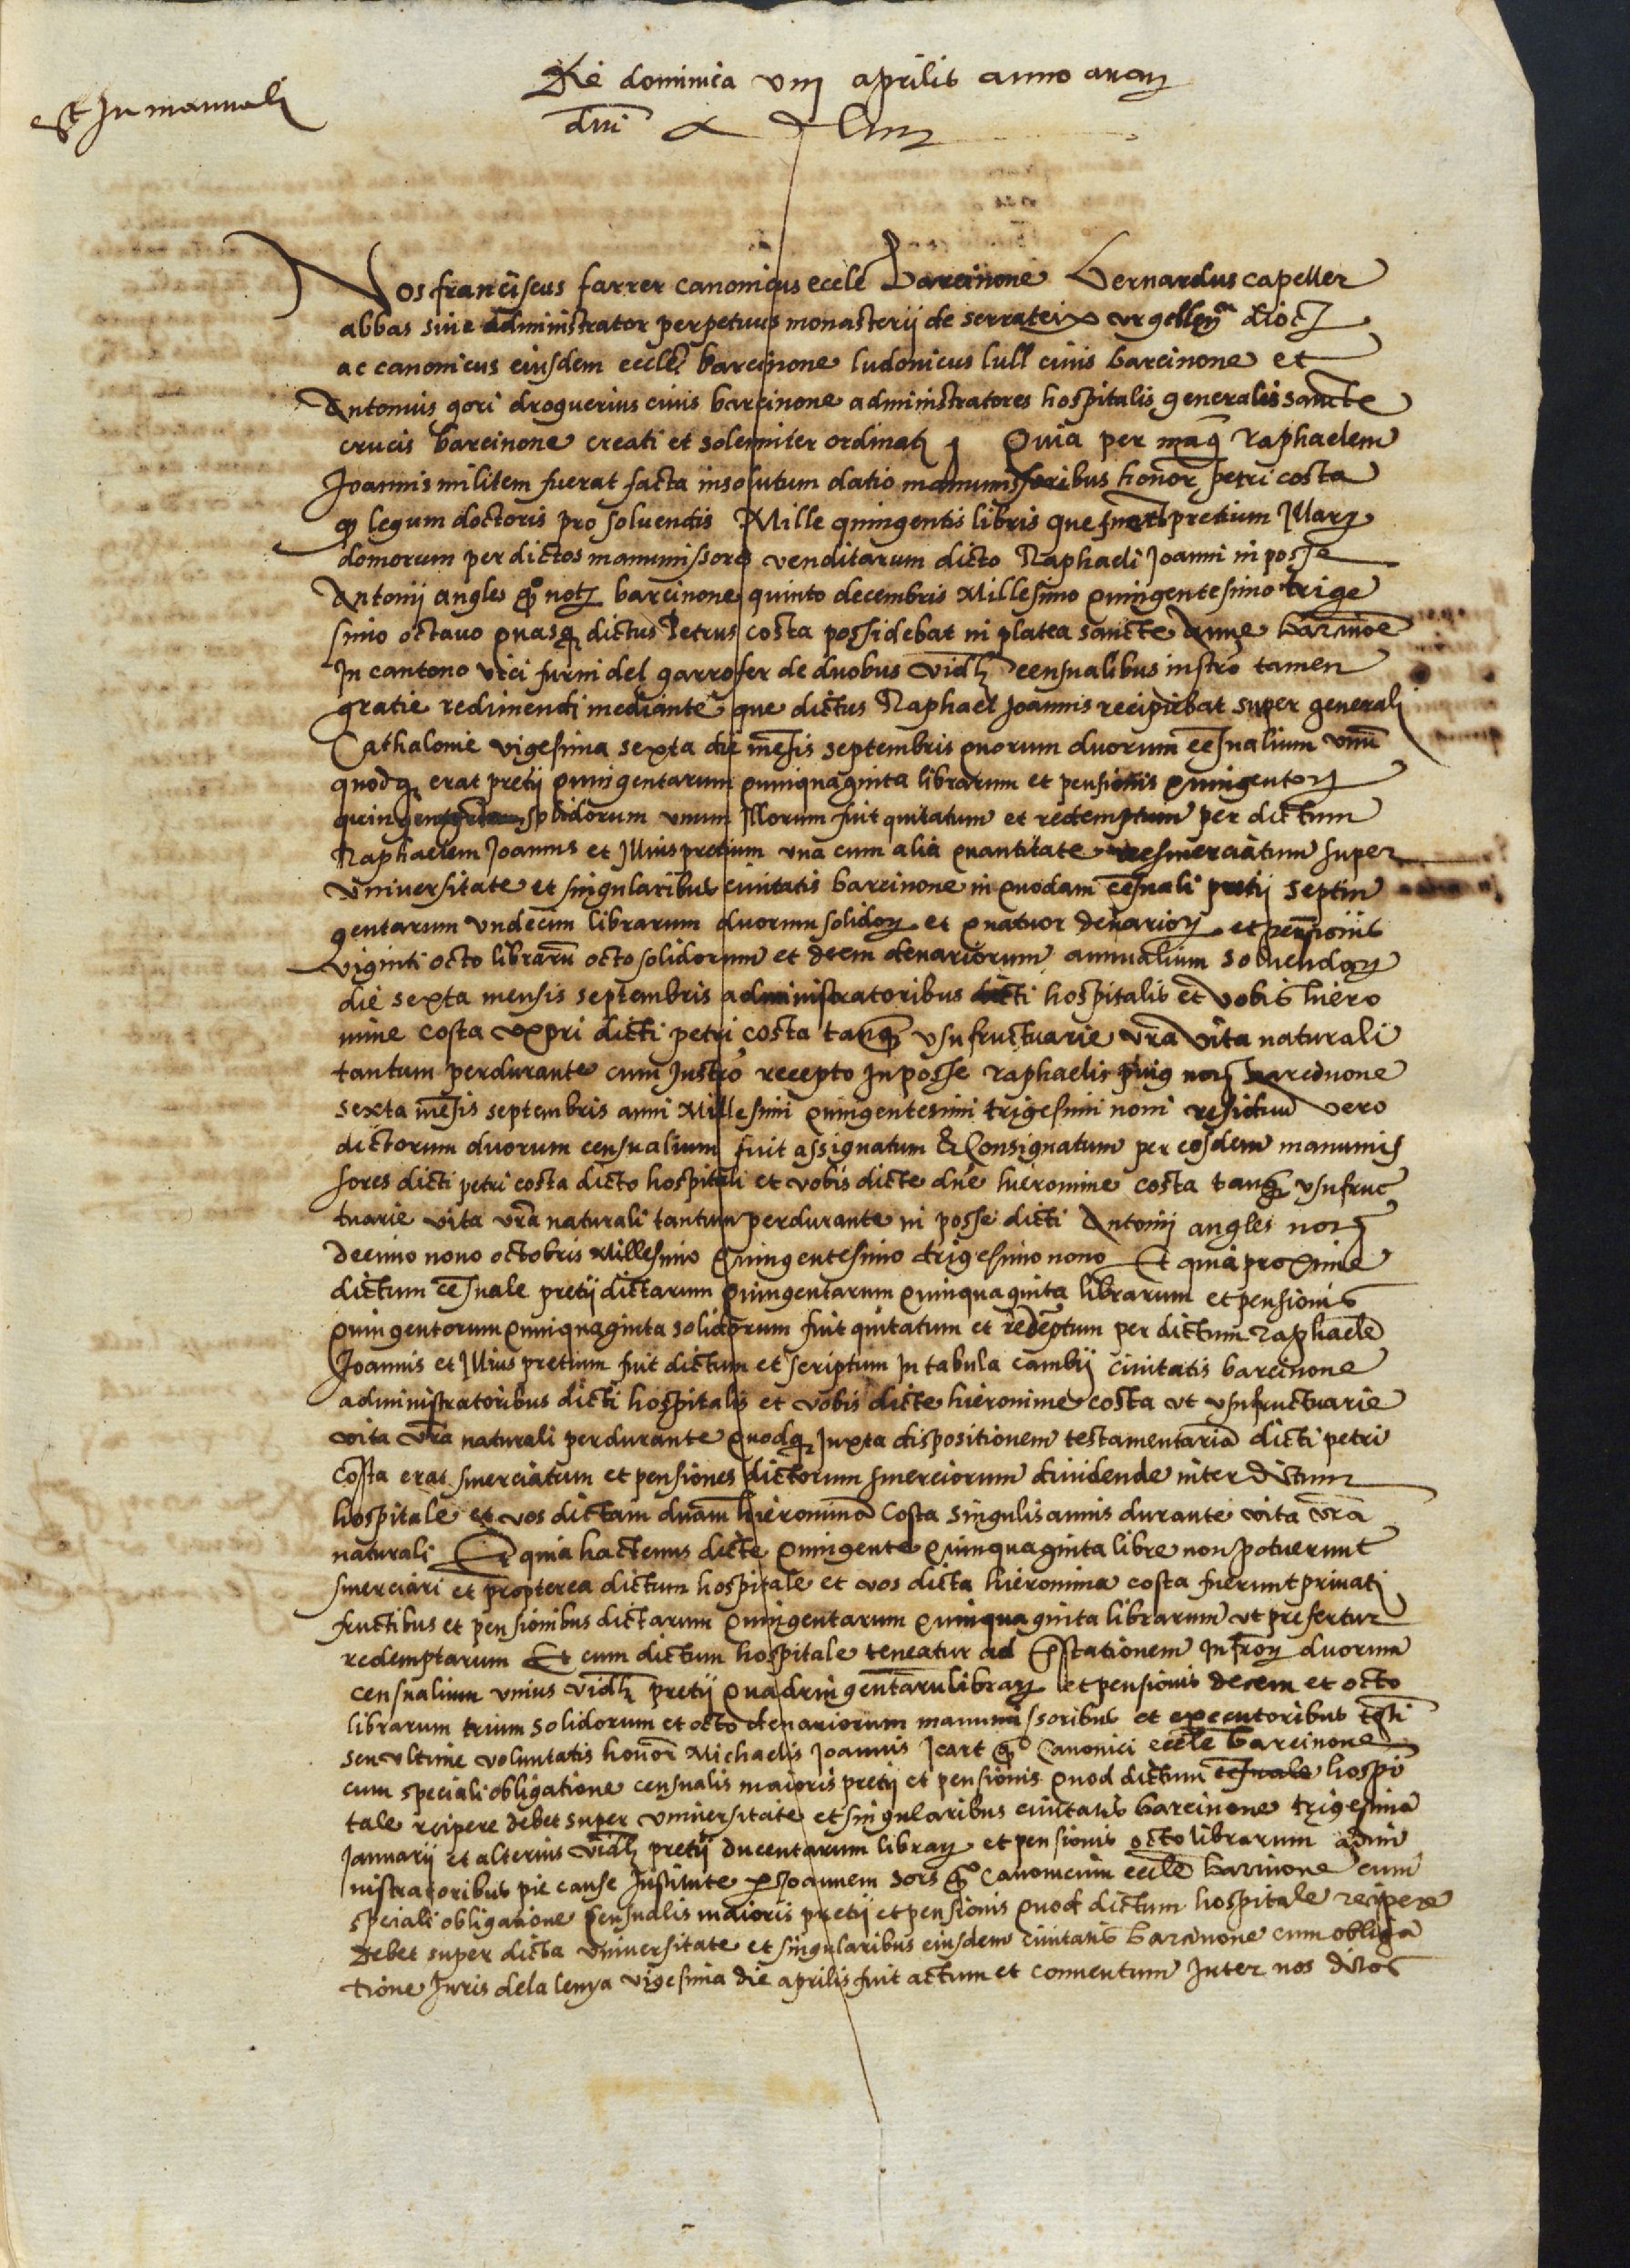 est In manuali
Die dominica viij aprilis anno a nat
dni
Nos franciscus farrer canonicus eccle Barcinone Bernardus capeller
abbas sive administrator perpetuus monasterij de serrateix urgelleñ dioc
ac canonicus eiusdem eccle barcinone ludovicus lull civis barcinone et
Antonius gori droguerius civis barcinone administratores hospitalis generalis sancte
crucis barcinone creati et solemniter ordinati Quia per magcum Raphaelem
Joannis militem fuerat facta insolutum datio manumissoribus honor petri costa
qo legum doctoris pro solvendis Mille quingentis libris que fuerunt pretium Illarum
domorum per dictos manumissores venditarum dicto Raphaeli Joanni in posse
Antonij angles qo notj barcinone quinto decembris Millesimo quingentesimo trige
simo octavo quasq dictus Petrus costa possidebat in platea sancte Anne barcinoe
In cantono vici furni del garrofer de duobus videlt censualibus instro tamen
gratie redimendi mediante que dictus Raphael Joannis recipiebat super generali
Cathalonie vigesima sexta die mesis septembris quorum duorum cesualium unu
quodq erat pretij quingentarum quinquaginta librarum et pensionis quingentor
quin solidorum unum Illorum fuit quitatum et redemptum per dictum
Raphaelem Joannis et Illius pretium una cum alia quantitate esmerciatum super
Universitate et singularibus civitatis barcinone in quodam cesuali pretij septin
gentarum undecim librarum duorum solidor et quatuor denarior et pensionis
viginti octo libraru octo solidorum et decem denariorum annualium solvendor
die sexta mensis septembris administratoribus dicti hospitalis et vobis hiero
nime costa uxori dicti petri costa tanq usufructuarie vra vita naturali
tantum perdurante cum Instro recepto In posse raphaelis puig not barcinone
sexta mesis septembris anni Millesimi quingentesimi trigesimi noni residuum vero
dictorum duorum censualium fuit assignatum & Consignatum per eosdem manumis
sores dicti petri costa dicto hospitali et vobis dicte dne hieronime costa tanq usufruc
tuarie vita vra naturali tantum perdurante in posse dicti Antonij angles notj
decimo nono octobris Millesimo Quingentesimo trigesimo nono Et quia proxime
dictum cesuale pretij dictarum quingentarum quinquaginta librarum et pensionis
quingentorum quinquaginta solidorum fuit quitatum et redeptum per dictum raphaele
Joannis et Illius pretium fuit dictum et scriptum In tabula cambij civitatis barcinone
administratoribus dicti hospitalis et vobis dicte hieronime costa ut usufructuarie
vita vra naturali perdurante quodq Juxta dispositionem testamentaria dicti petri
Costa erat smerciatum et pensiones dictorum smerciorum dividende inter dictum
hospitale et vos dictam dnam hieronima Costa singulis annis durante vita vra
naturali Et quia hactenus dicte quingente quinquaginta libre non potuerunt
smerciari et propterea dictum hospitale et vos dicta hieronima costa fuerunt privati
fructibus et pensionibus dictarum quingentarum quinquaginta librarum ut prefertur
redemptarum Et cum dictum hospitale teneatur ad pstationem Infror duorum
censualium unius videlt pretij quadringentaru librar et pensionis decem et octo
librarum trium solidorum et octo denariorum manumissoribus et executoribus testi
seu ultime voluntatis honor Michaelis Joannis Icart qo Canonici eccle barcinone
cum speciali obligatione censualis maioris pretij et pensionis quod dictum cesuale hospi
tale recipere debet super universitate et singularibus civitatis barcinone trigesima
Januarij et alterius videlt pretij ducentarum librar et pensionis octo librarum admi
nistratoribus pie cause Institute p Joannem sors qo Canonicum eccle barcinone cum
speciali obligatione censualis maioris pretij et pensionis quod dictum hospitale recipere
debet super dicta universitate et singularibus eiusdem civitatis barcinone cum obliga
tione Juris dela lenya vigesima die aprilis fuit actum et conventum Inter nos dictos